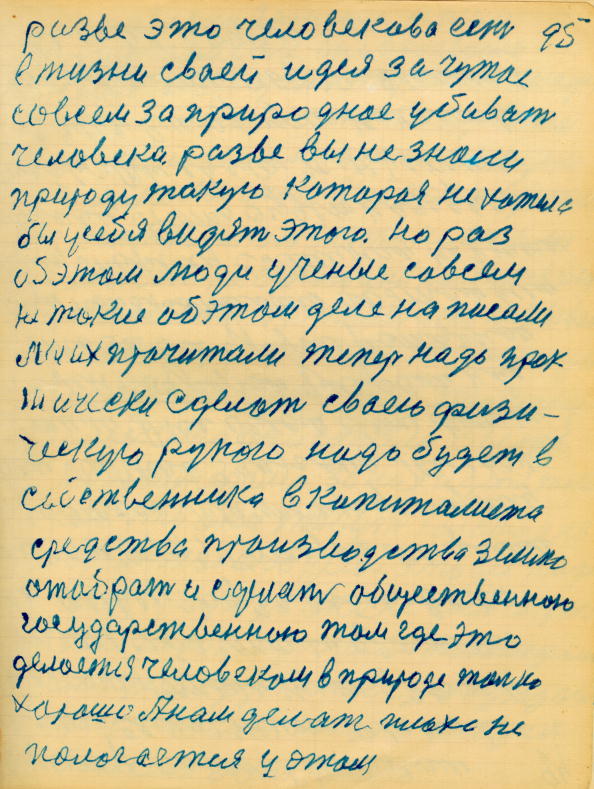 разве это человекова сеть 95
в жизни своей идея за чужое
совсем за природное убиват
человека разве вы не знали
природу такую которая не хотела
бы у себя видят этого. но раз
об этом люди ученые совсем
не такие об этом деле написали
Мы их прочитали тепер надо прак
тически сделат своею физи-
ческую рукою надо будет в
собственника в капиталиста
средства производства Землю
отобрат и сделат общественною
государственною там где это
делается человеком в природе толко
хорошо А нам делат плохо не
пологается у этом